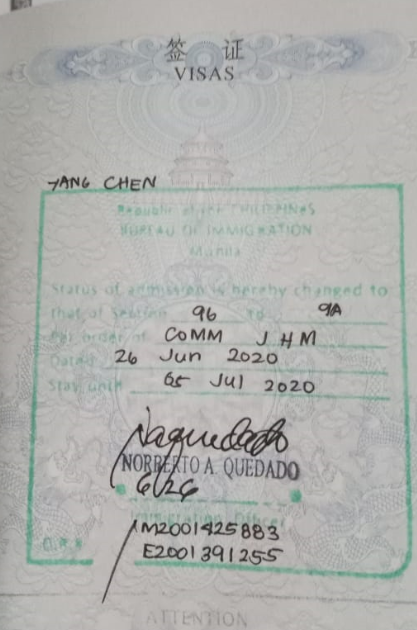 签 证
VISAS
YANG CHEN
Republic of the PHILIPPINES
BUREAU OF IMMIGRATION
Manila
Status of admission is hereby changed to
that of Section 9G to 9A
Per order of COMM J H M
Dated 26 Jun 2020
Stay until 05 Jul 2020
NORBERTO A. QUEDADO
6/26
Immigration Officer
M2001425883
O.R.# E2001391255
ATTENTION